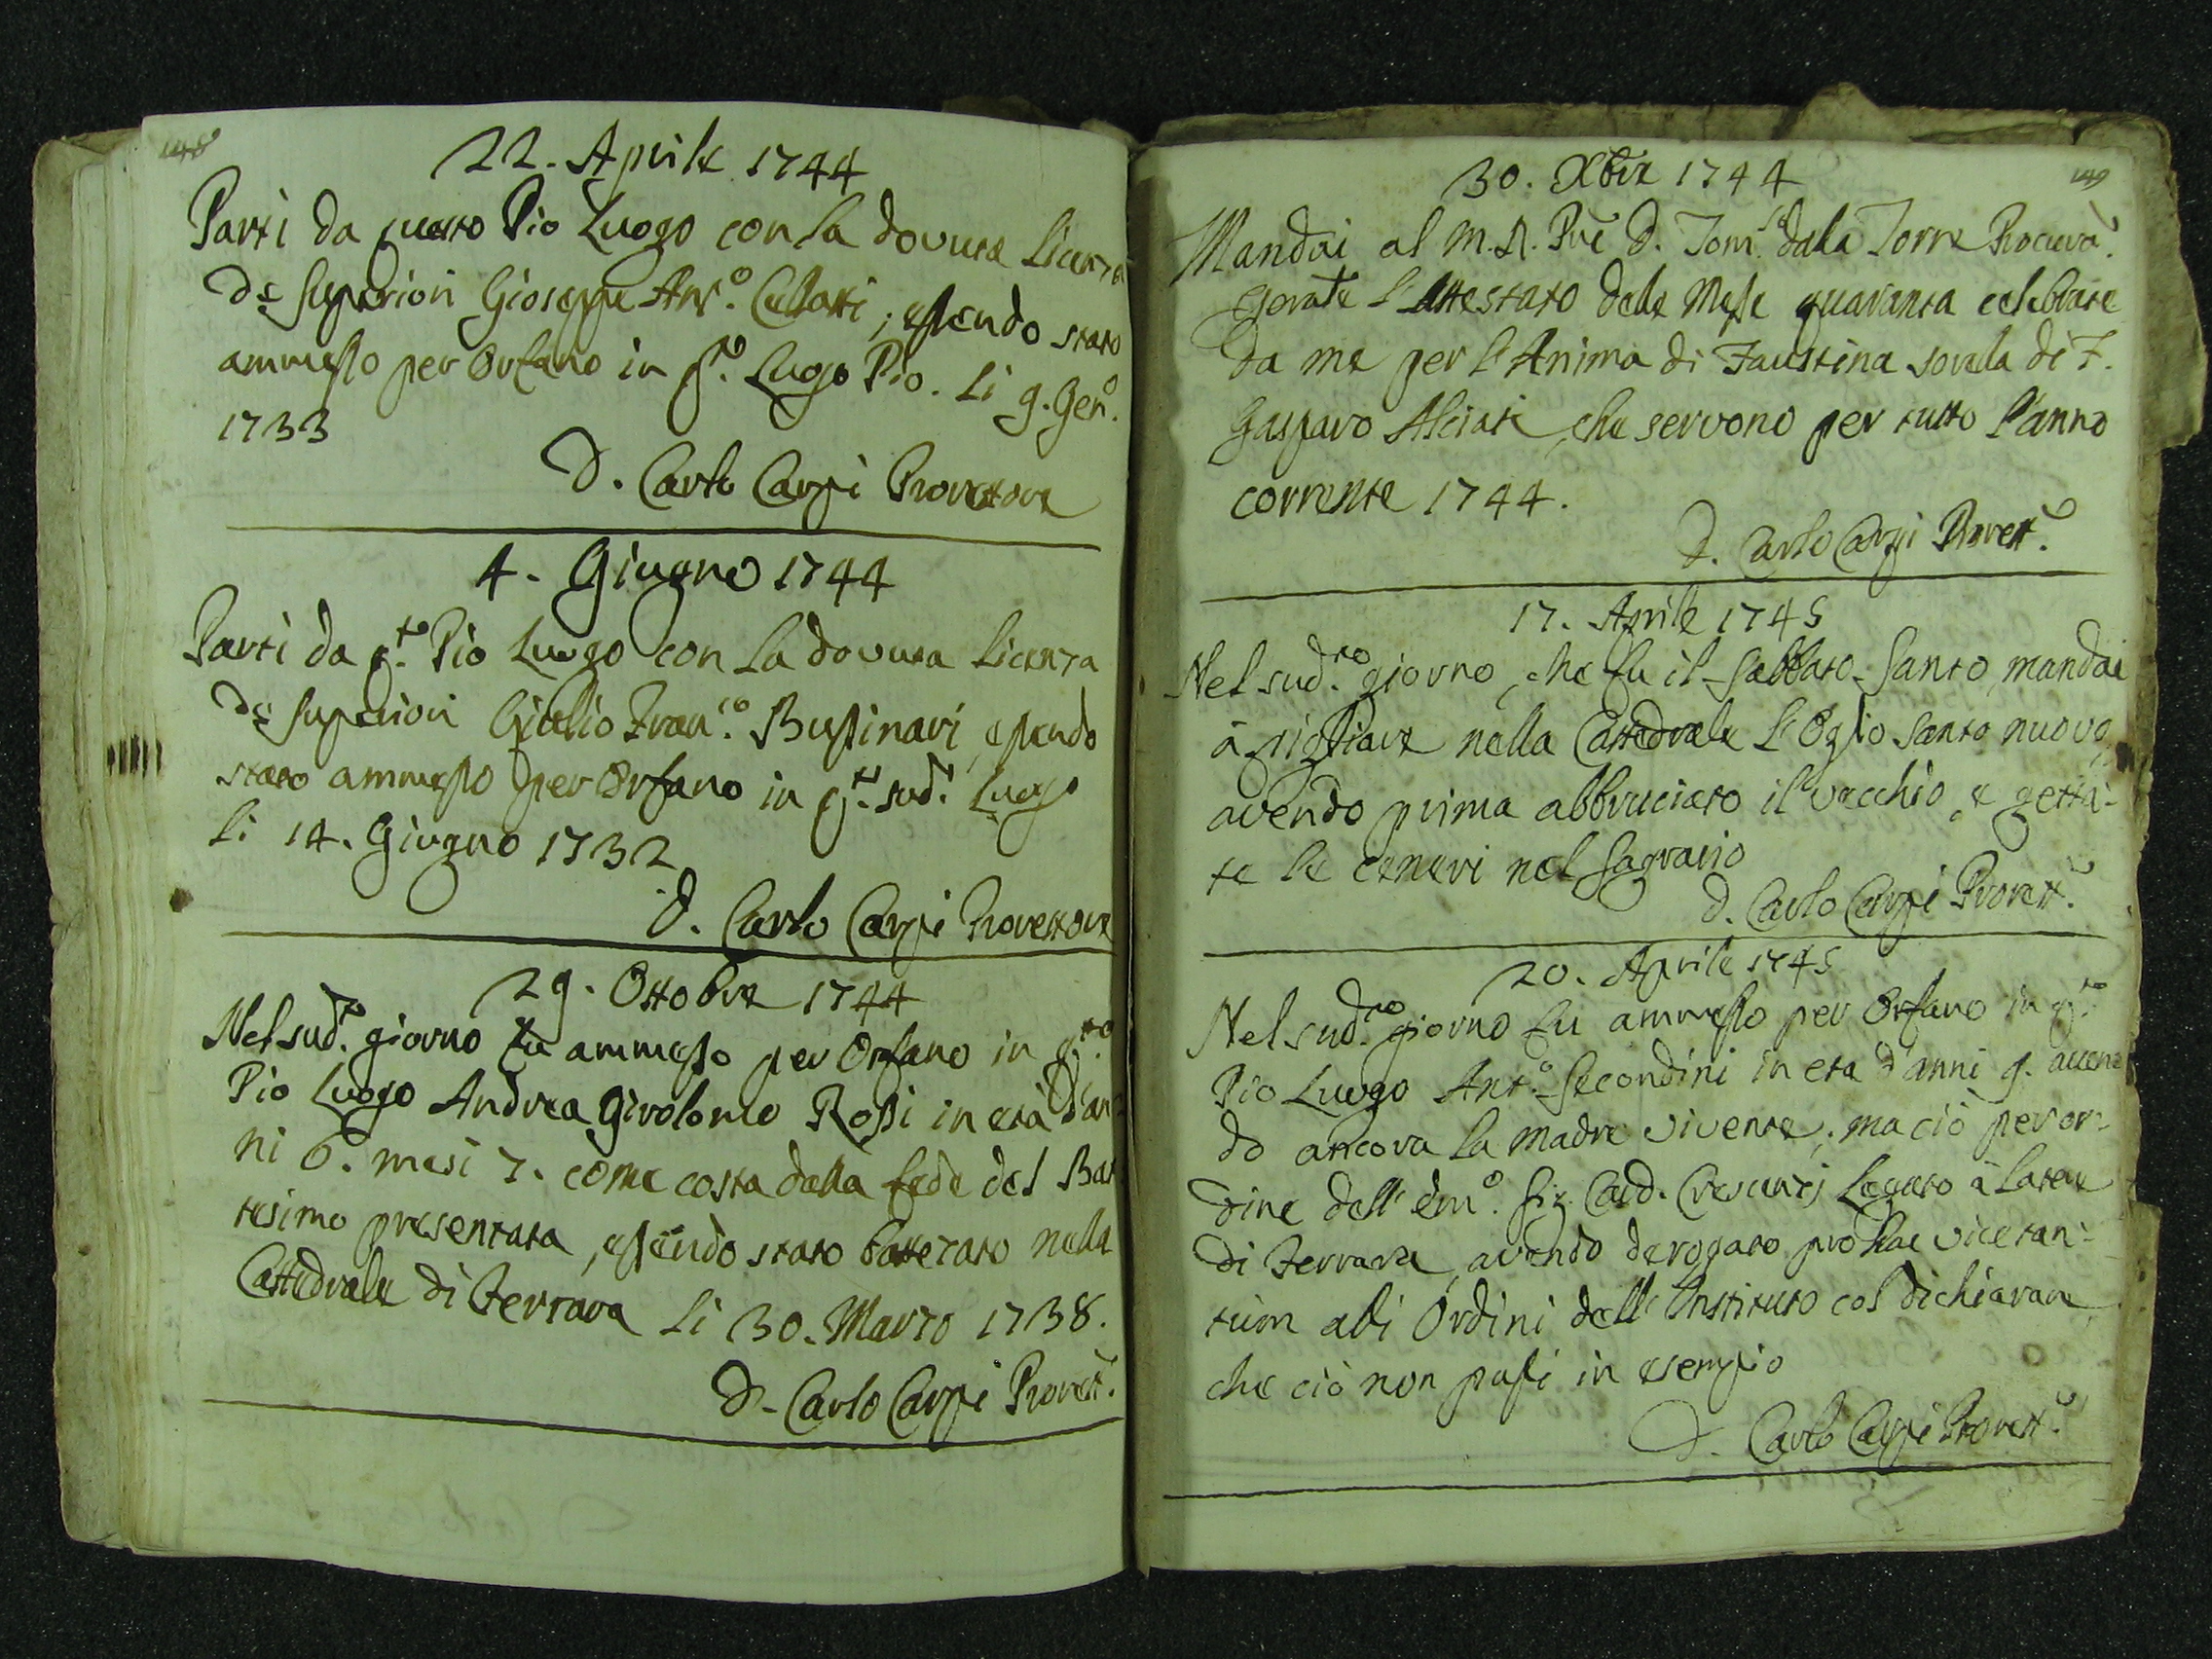 148
22. Aprile 1744
Partì da questo Pio Luogo con la dovuta licenza
de Superiori Gioseppe Ant.º Cellotti; essendo stato
ammesso per Orfano in q.º Luogo Pio. li 9. Gen.º
1733
D. Carlo Carpi Provettore
4. Giugno 1744
Partì da q.to Pio Luogo con la dovuta licenza
de Superiori Giulio Fran.co Bussinari, essendo
stato ammesso per Orfano in q.to sud.to Luogo
li 14. Giugno 1732
D. Carlo Carpi Provettore
29. Ottobre 1744
Nel sud.to giorno fu ammesso per Orfano in q.to
Pio Luogo Andrea Girolomo Rossi in età d'an-
ni 6. mesi 7. come costa dalla fede del Bat-
tesimo presentata, essendo stato battezato nella
Cattedrale di Ferrara li 30. Marzo 1738.
D. Carlo Carpi Provett.e
149
30. Xbre 1744
Mandai al M. R. Prẽ D. Tom.so dalla Torre Procurã.
Generale l'Attestato delle Messe quaranta celebrate
da me per l'Anima di Faustina sorella di F.
Gasparo Alciati, che servono per tutto l'anno
corrente 1744.
D. Carlo Carpi Provett.e
17. Aprile 1745
Nel sud.to giorno, che fu il Sabbato Santo mandai
à pigliare nella Cattedrale l'Oglio santo nuovo,
avendo prima abbruciato il vecchio, e getta-
te le ceneri nel Sagrario
D. Carlo Carpi Provett.e
20. Aprile 1745
Nel sud.to giorno fu ammesso per Orfano in q.to
Pio Luogo Ant.º Secondini in eta d'anni 9. aven-
do ancora la madre vivente; ma ciò per or-
dine dell'Em.º Sig. Card. Crescenzj Legato à latere
di Ferrara, avendo derogato pro hac vice tan-
tùm alli Ordini dell'Instituto col dichiarare,
che ciò non passi in esempio
D. Carlo Carpi Provett.e